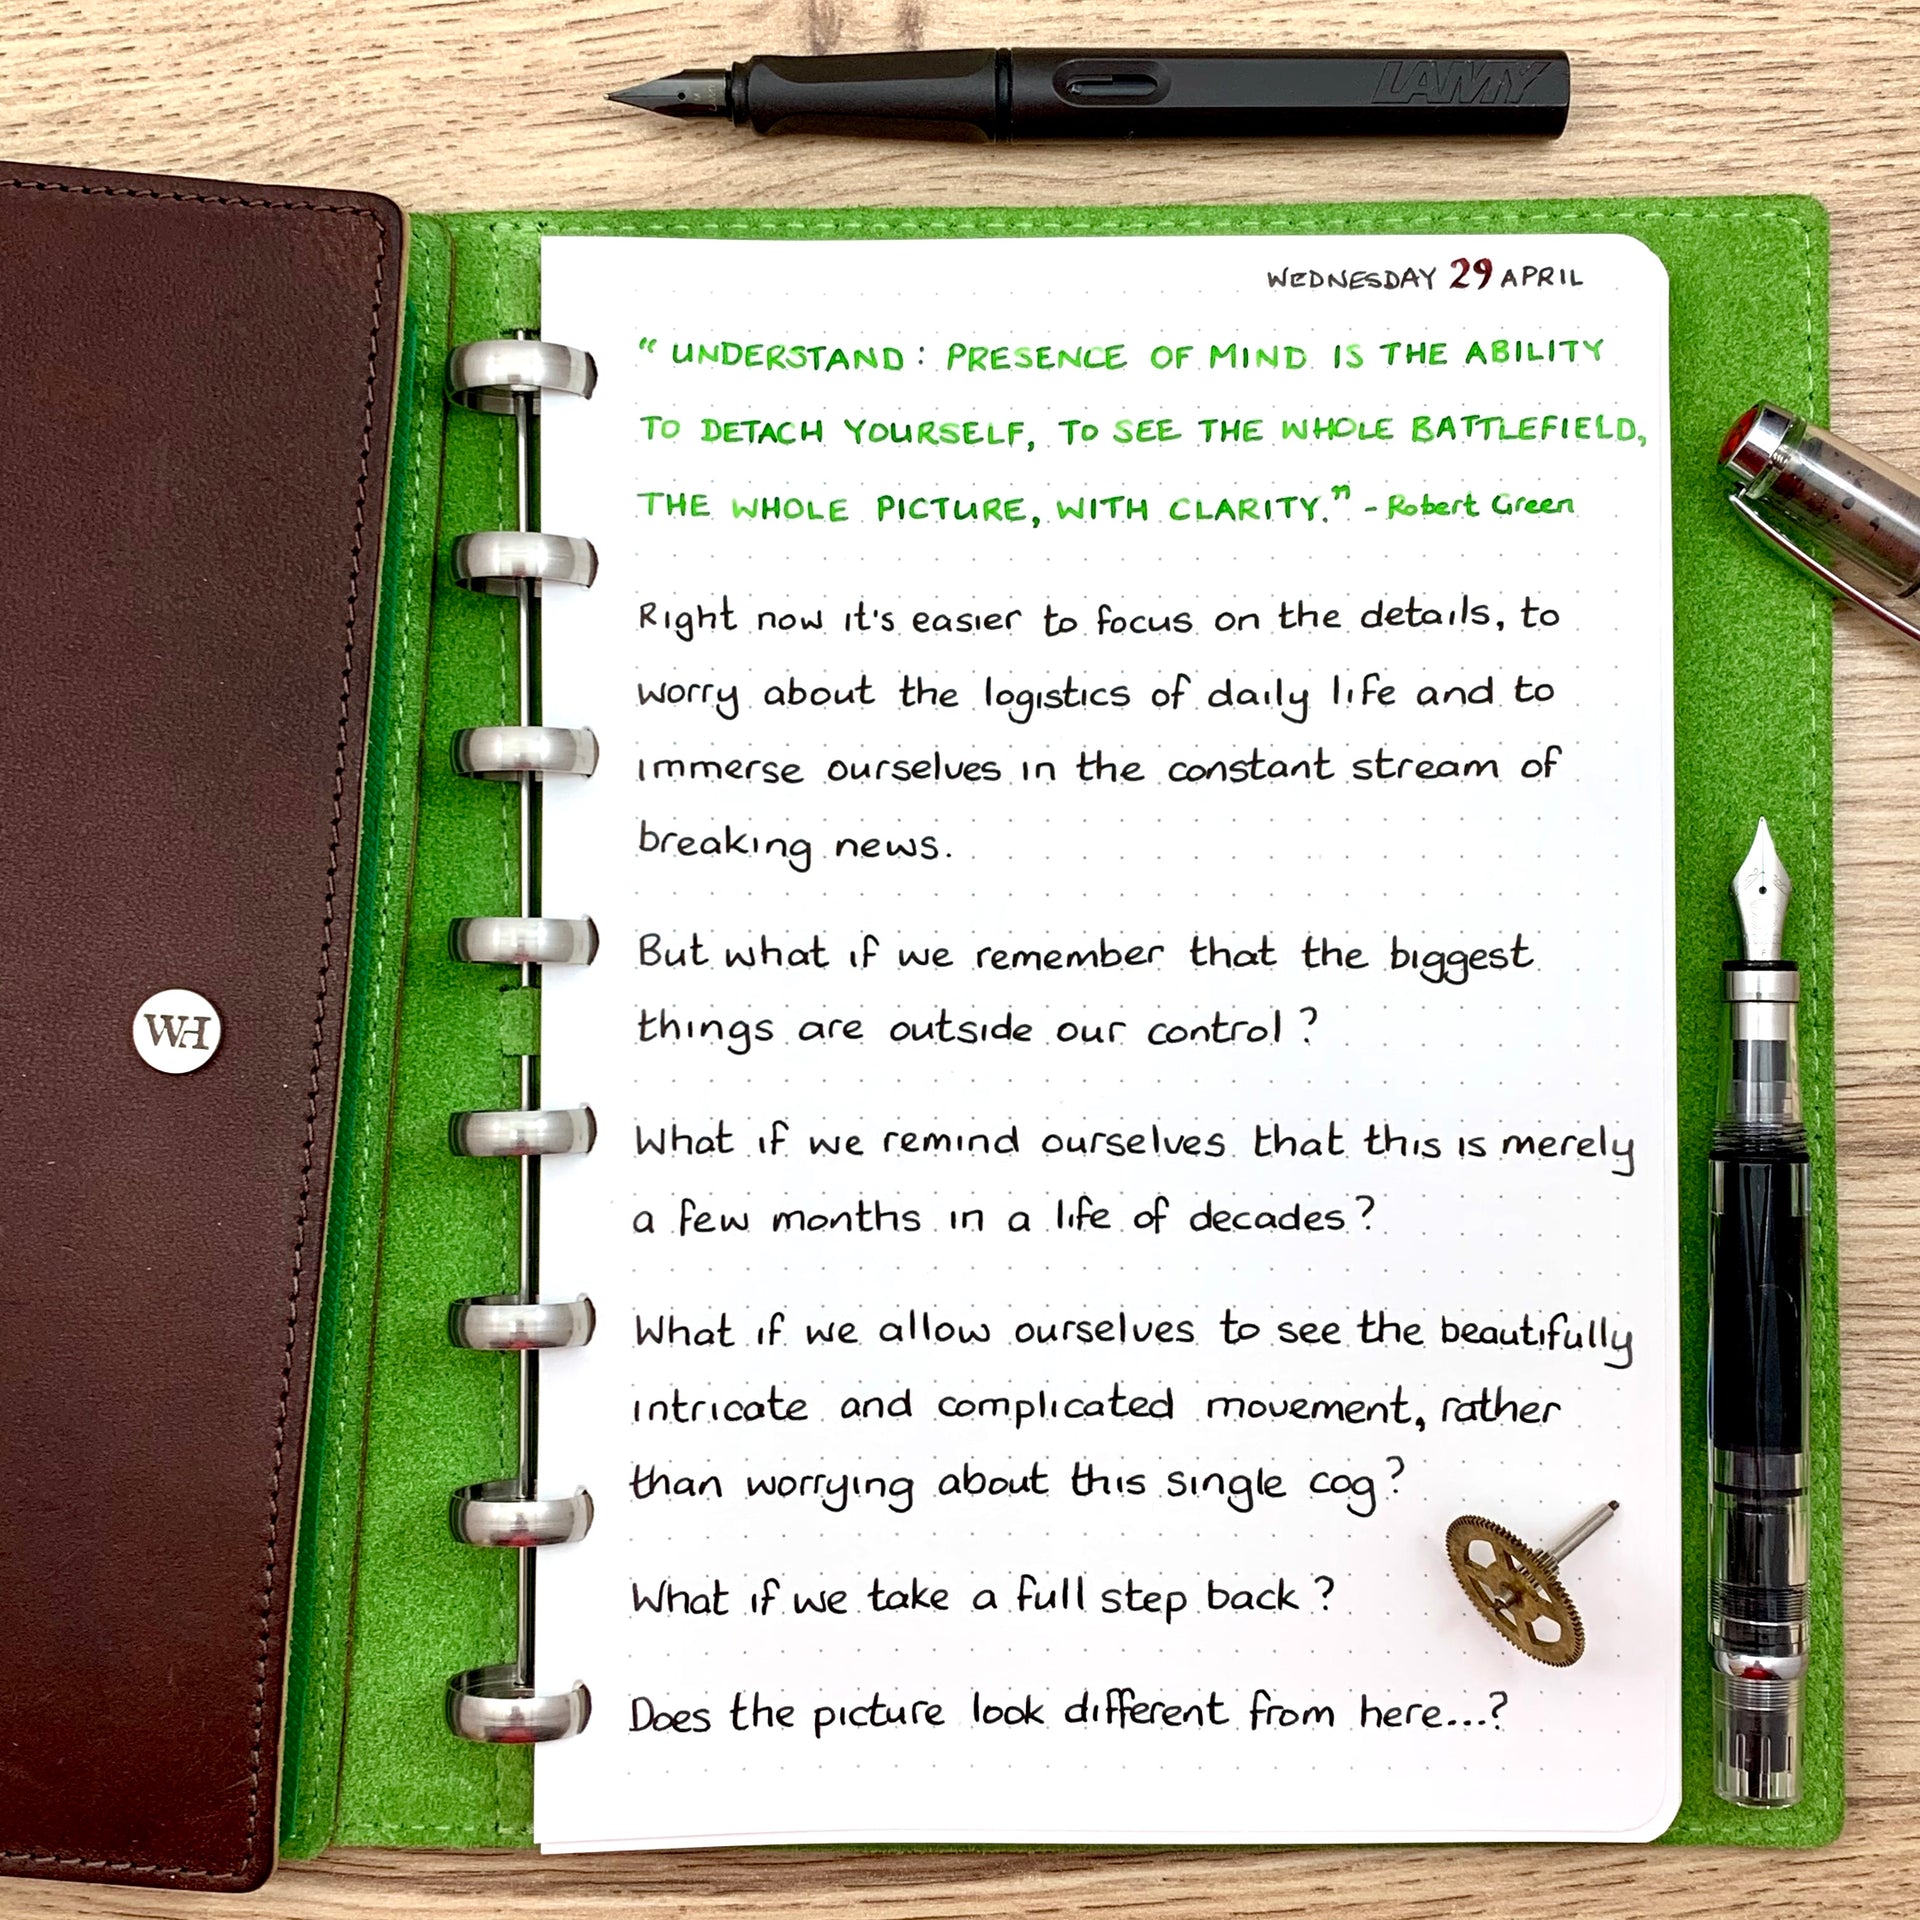 LAMY
WEDNESDAY 29 APRIL
“ UNDERSTAND : PRESENCE OF MIND IS THE ABILITY
TO DETACH YOURSELF, TO SEE THE WHOLE BATTLEFIELD,
THE WHOLE PICTURE, WITH CLARITY.” - Robert Green
Right now it's easier to focus on the details, to
worry about the logistics of daily life and to
immerse ourselves in the constant stream of
breaking news.
But what if we remember that the biggest
things are outside our control ?
What if we remind ourselves that this is merely
a few months in a life of decades ?
What if we allow ourselves to see the beautifully
intricate and complicated movement, rather
than worrying about this single cog ?
What if we take a full step back ?
Does the picture look different from here...?
WH